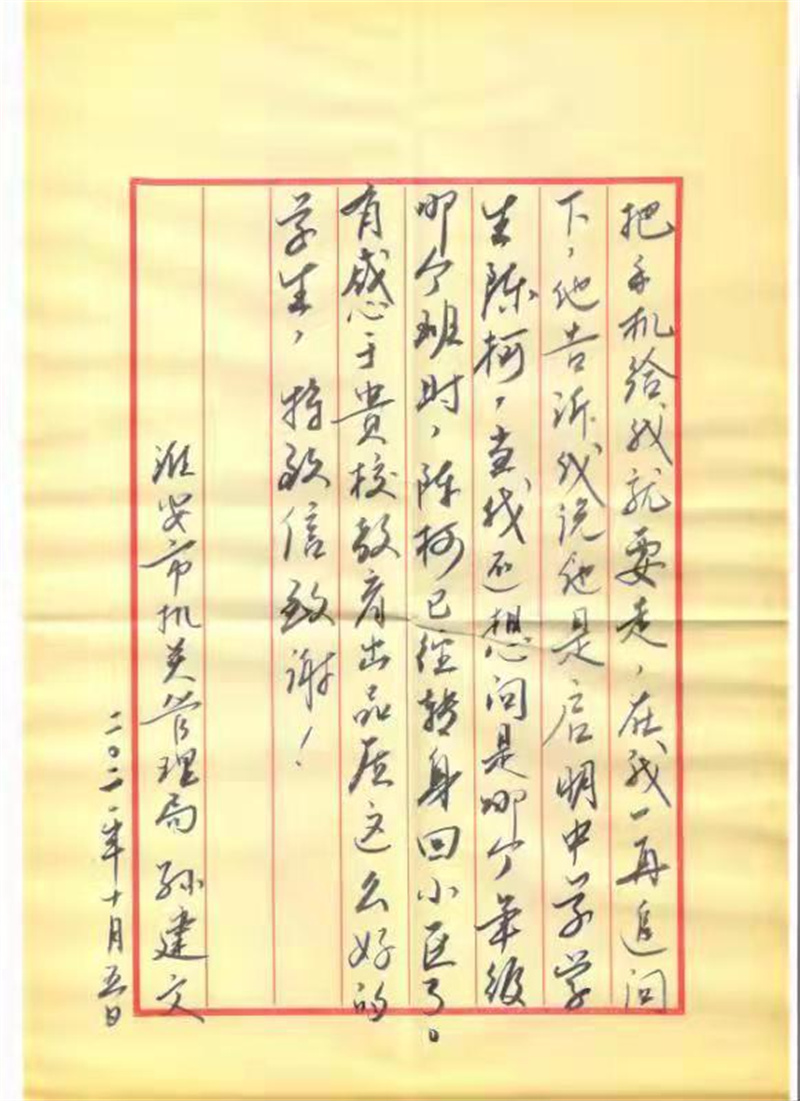 把手机给我就要走，在我一再追问
下，他告诉我说他是启明中学学
生陈柯，当我还想问是哪个年级
哪个班时，陈柯已经转身回小区了。
有感于贵校教育出品质这么好的
学生，特致信致谢！
淮安市机关管理局 孙建文
二〇二一年十月五日